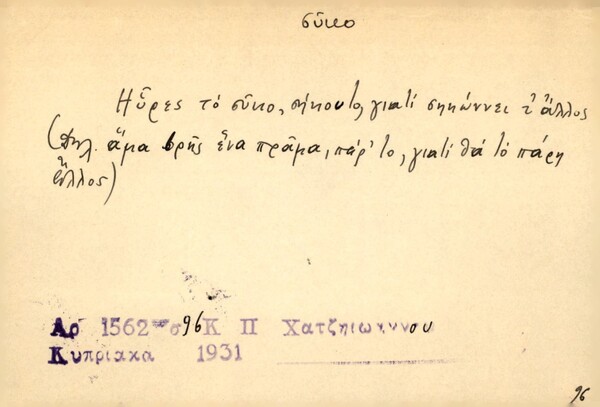 σῦκο
Ηὗρες τὸ σῦκο, σήκου το, γιατί σηκώννει τ' ἄλλος
(Δηλ. ἅμα βρῇς ἕνα πρᾶμα, πάρ' το, γιατί θά τό πάρῃ
ἄλλος)
Αρ 1562 σ 96 Κ Π Χατζηιωαννου
Κυπριακα 1931
96